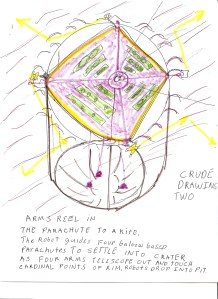 CRUDE
DRAWING
TWO
ARMS REEL IN
THE PARACHUTE TO A KITE.
THE ROBOT GUIDES FOUR
PARACHUTES TO SETTLE INTO CRATER
AS FOUR ARMS TELESCOPE OUT AND TOUCH
CARDINAL POINTS OF RIM, ROBOTS DROP INTO PIT.